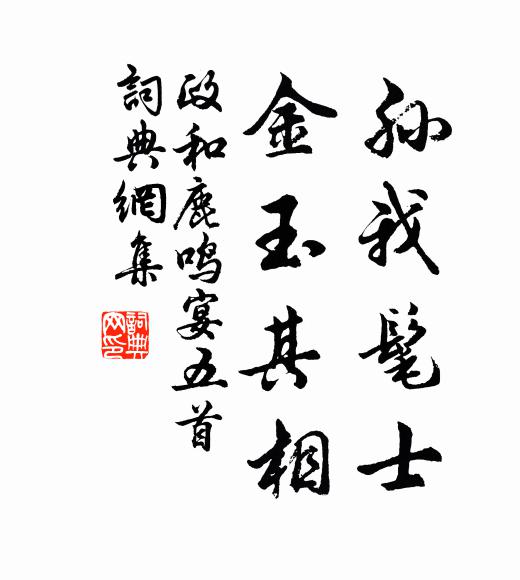 烝我髦士
金玉其相
政和鹿鸣宴五首
詞典網集
詞典
网印